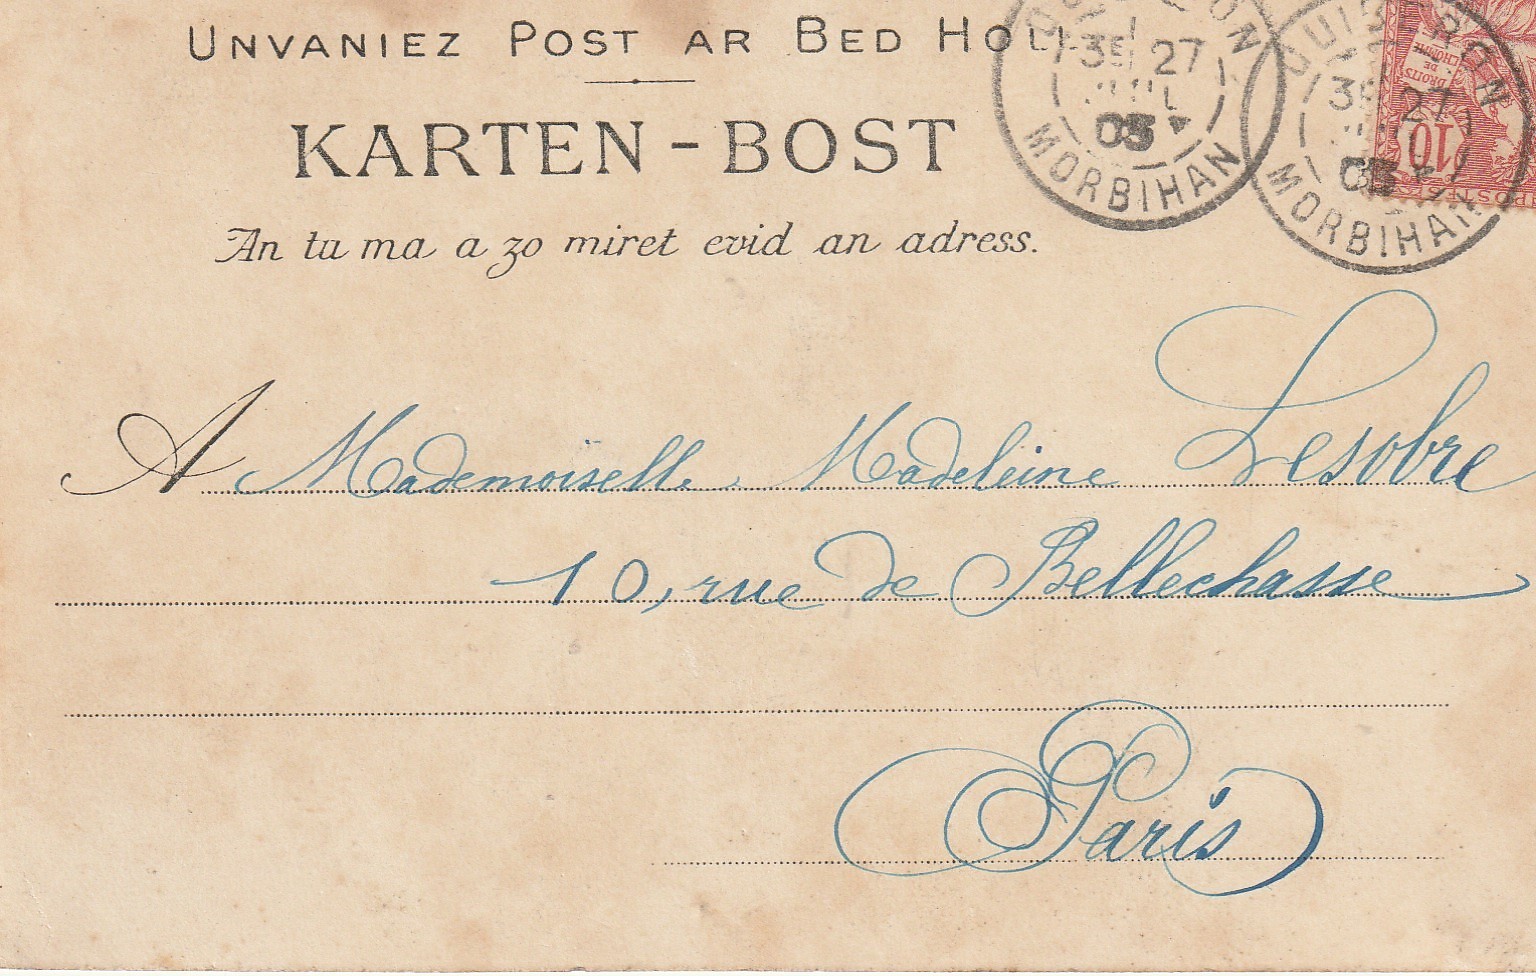 UNVANIEZ POST AR BED HOLL
KARTEN-BOST
An tu ma a zo miret evid an adress.
QUIBERON
3E 27
03
MORBIHAN
QUIBERON
3E 27
03
MORBIHAN
DROITS
DE
L'HOMME
10
POSTES
A Mademoiselle Madeleine Lesobre
10, rue de Bellechasse
Paris